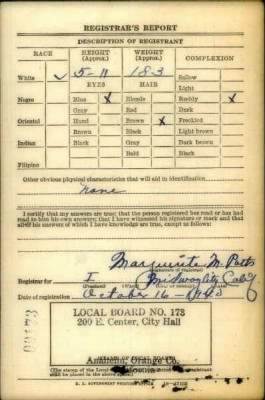 REGISTRAR'S REPORT
DESCRIPTION OF REGISTRANT
RACE HEIGHT (Approx.) WEIGHT (Approx.) COMPLEXION
White ✓ 5-11 183 Sallow
EYES HAIR Light
Negro Blue X Blonde Ruddy X
Gray Red Dark
Oriental Hazel Brown X Freckled
Brown Black Light brown
Indian Black Gray Dark brown
Bald Black
Filipino
Other obvious physical characteristics that will aid in identification
none
I certify that my answers are true; that the person registered has read or has had
read to him his own answers; that I have witnessed his signature or mark and that
all of his answers of which I have knowledge are true, except as follows:
Marguerite M.
(Signature of registrar)
Registrar for I Midway City Calif
(Precinct) (Ward) (City or county) (State)
Date of registration October 16 -
LOCAL BOARD NO. 173
200 E. Center, City Hall
Anaheim, Orange Co.
(STAMP OF LOCAL BOARD)
(The stamp of the Local Board
shall be placed in the above space.)
U. S. GOVERNMENT PRINTING OFFICE